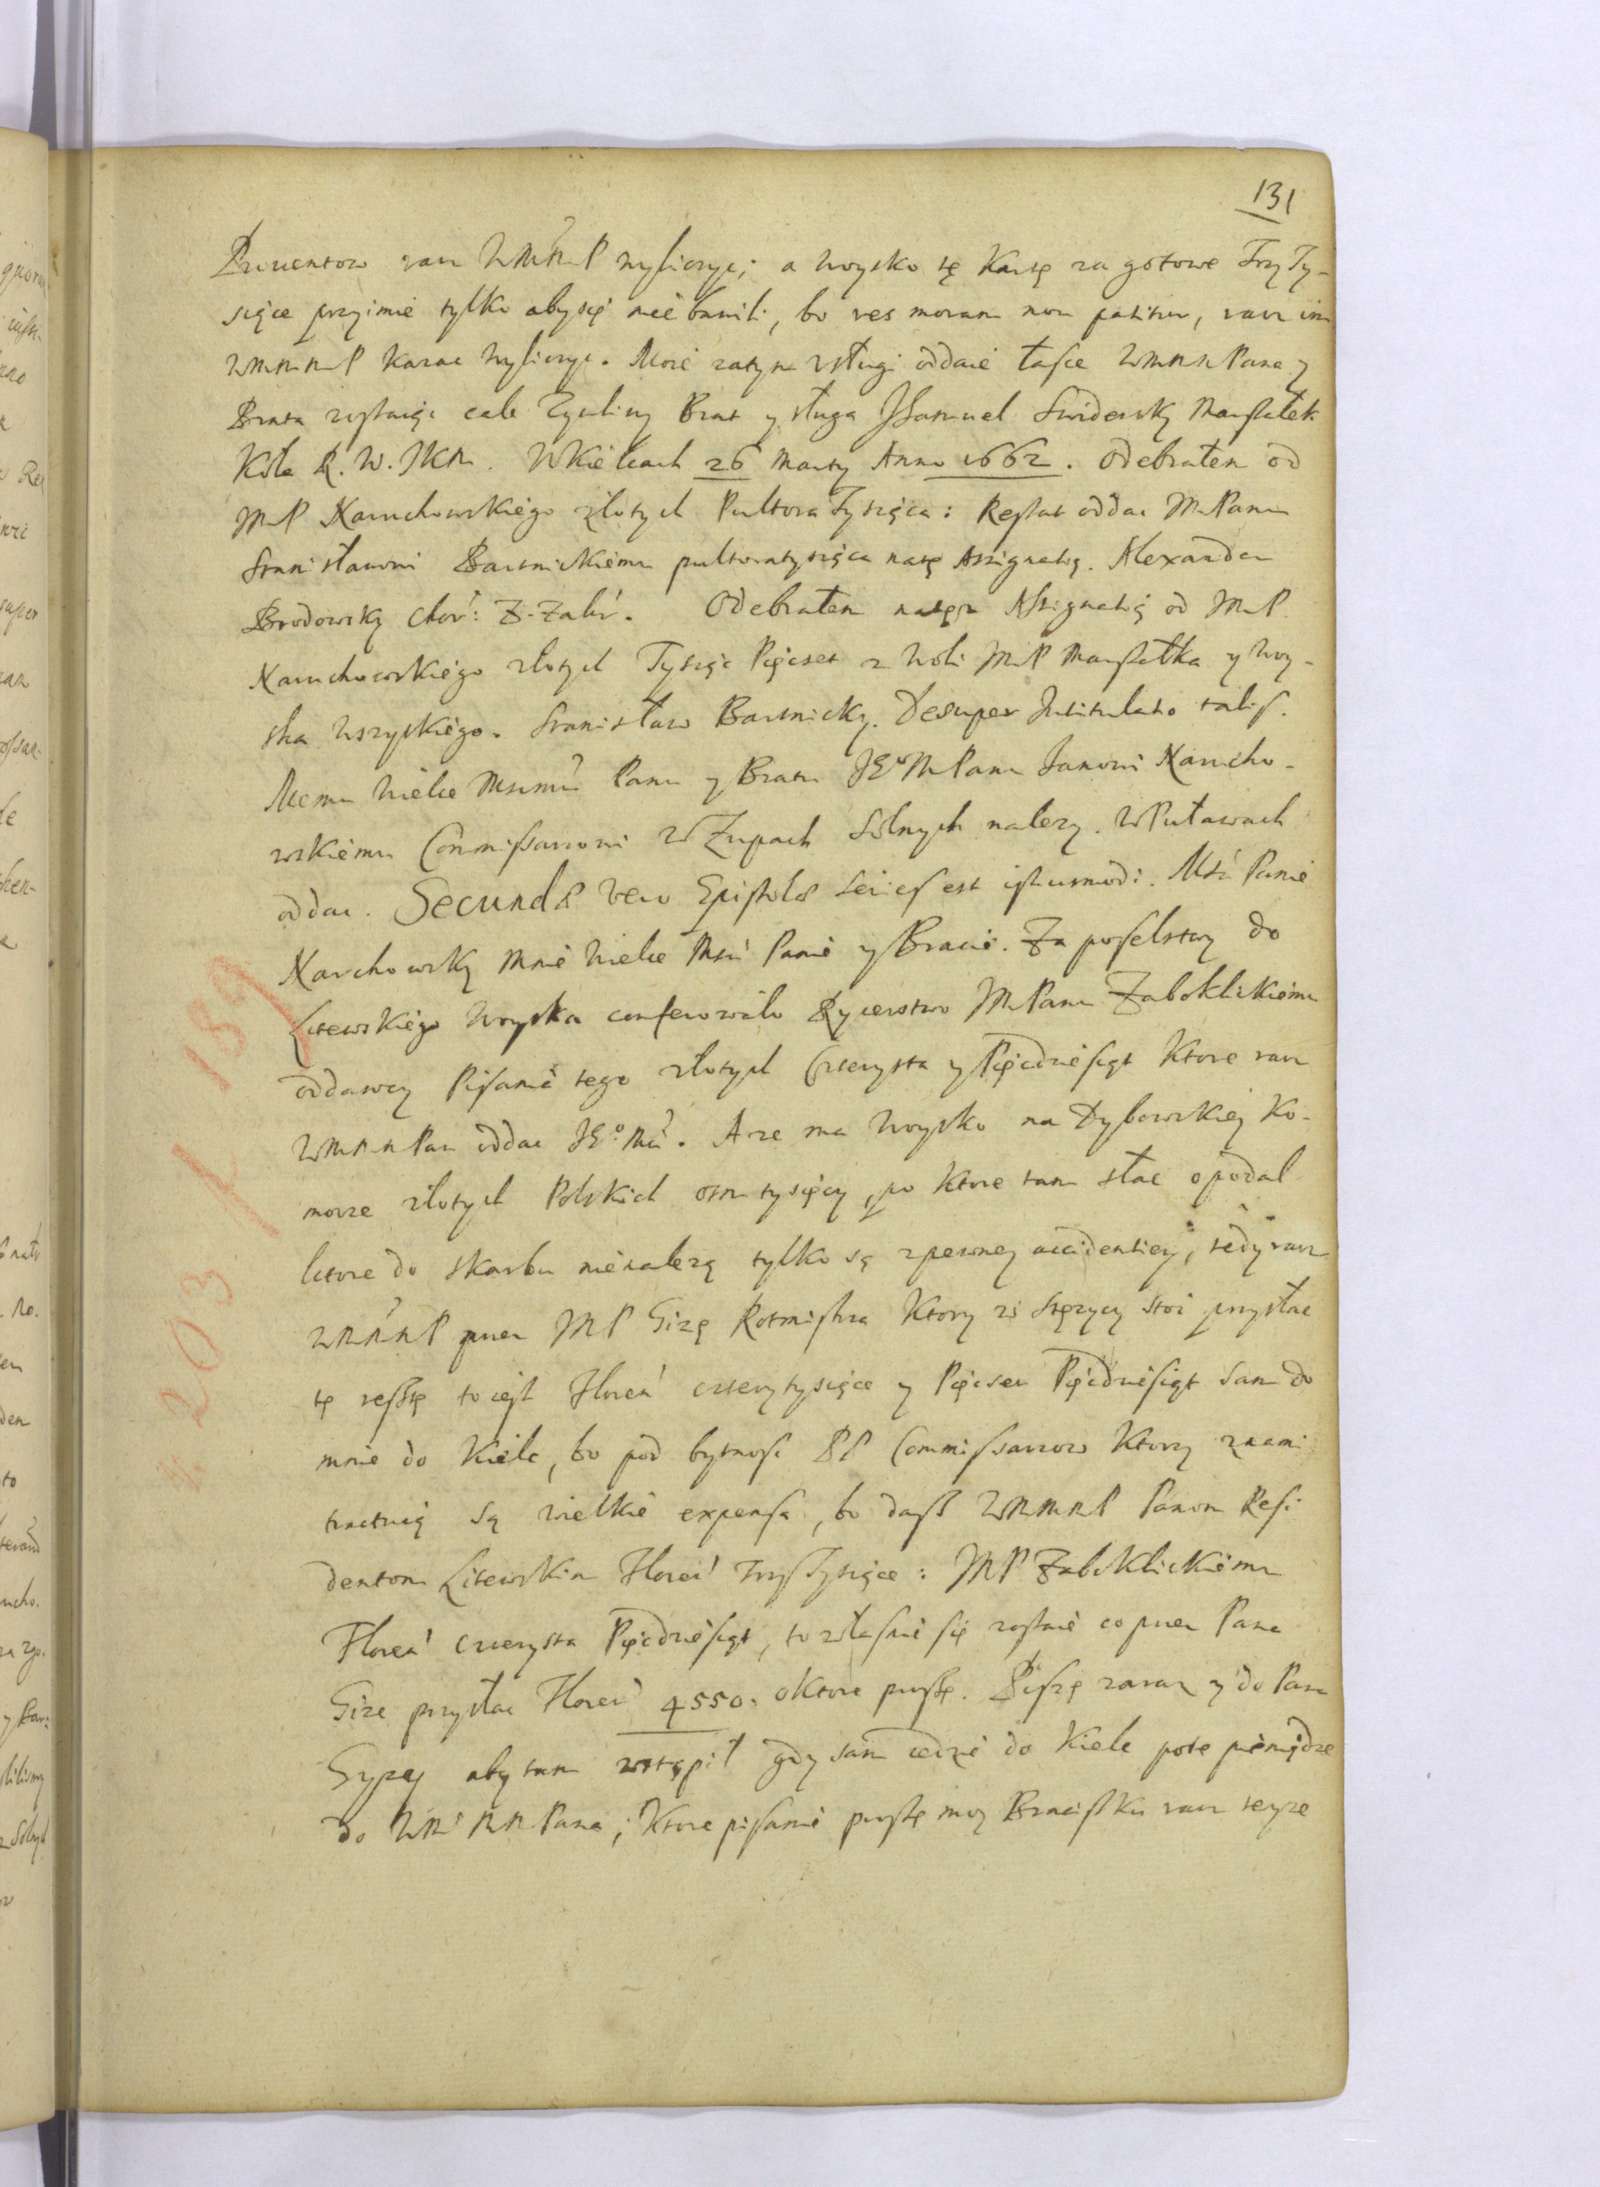 131
Prowentow racz WMMP wyliczyc; a woysko tę kartę za gotowe Trzy Ty-
siące przyimie tylko aby się nie bawili, bo res moram non patitur, racz im
WMMMP kazac wyliczyc. Moie zatym usługi oddaie łasce WMMMPana y
Brata zostaiąc cale Zyczliwy Brat y sługa JSamuel Swidersky Marszałek
Koła R. W. JKM. W Kielcach 26 Marty Anno 1662. Odebrałem od
JMP Karuchowskiego złotych Pułtora Tysiąca: Restat oddac JMPanu
Stanisławowi Bartnickiemu pułtoratysiąca na tę Assignatią. Alexander
Brodowsky Chor: Z. Zakr. Odebrałem na tę Assignatią od JMP
Karuchowskiego złotych Tysiąc Pięcset z woli JMP Marszałka y woy-
ska wszytkiego. Stanisław Bartnicky. Desuper Intitulatio talis.
Memu wielce Mscmu Panu y Bratu JEoMPanu Janowi Karucho-
wskiemu Commissarzowi W Zupach Solnych nalezy. W Puławach
oddac. Secundæ vero Epistolæ series est istiusmodi. Msci Panie
Karchowsky mnie wielce Msci Panie y Bracie. Za poselstwy do
Litewskiego woyska conferowało Rycerstwo JMPanu Zaboklickiemu
oddawcy Pisania tego złotych Czterysta y Pięcdziesiąt ktore racz
WMMMPan oddac JEo Mci. A ze ma woysko na Dybowskiey Ko-
morze złotych Polskich osm tysięcy, po ktore tam słac opodal
ktore do skarbu nienalezą tylko są z pewney accidentiey, tedy racz
WMMMP przez JMP Gizę Rotmistrza ktory w Stęzycy stoi przysłac
tę resztę to iest Floren czterytysiące y Pięcset Pięcdziesiąt sam do
mnie do Kielc, bo pod bytnosc PP Commissarzow ktorzy z nami
tractuią są wielkie expensa, bo dasz WMMMP Panom Resi-
dentom Litewskim Floren trzy Tysiące: JMP Zaboklickiemu
Floren czterysta Pięcdziesiąt, to własnie się zostanie co przez Pana
Gize przysłac Floren 4550. o ktore proszę. Piszę zaraz y do Pana
Gyzej aby tam wstąpił gdy sam iedzie do Kielc po te pieniądze
do WMMMPana; ktore pisanie proszę moy Braciszku racz teyze
203 / 159